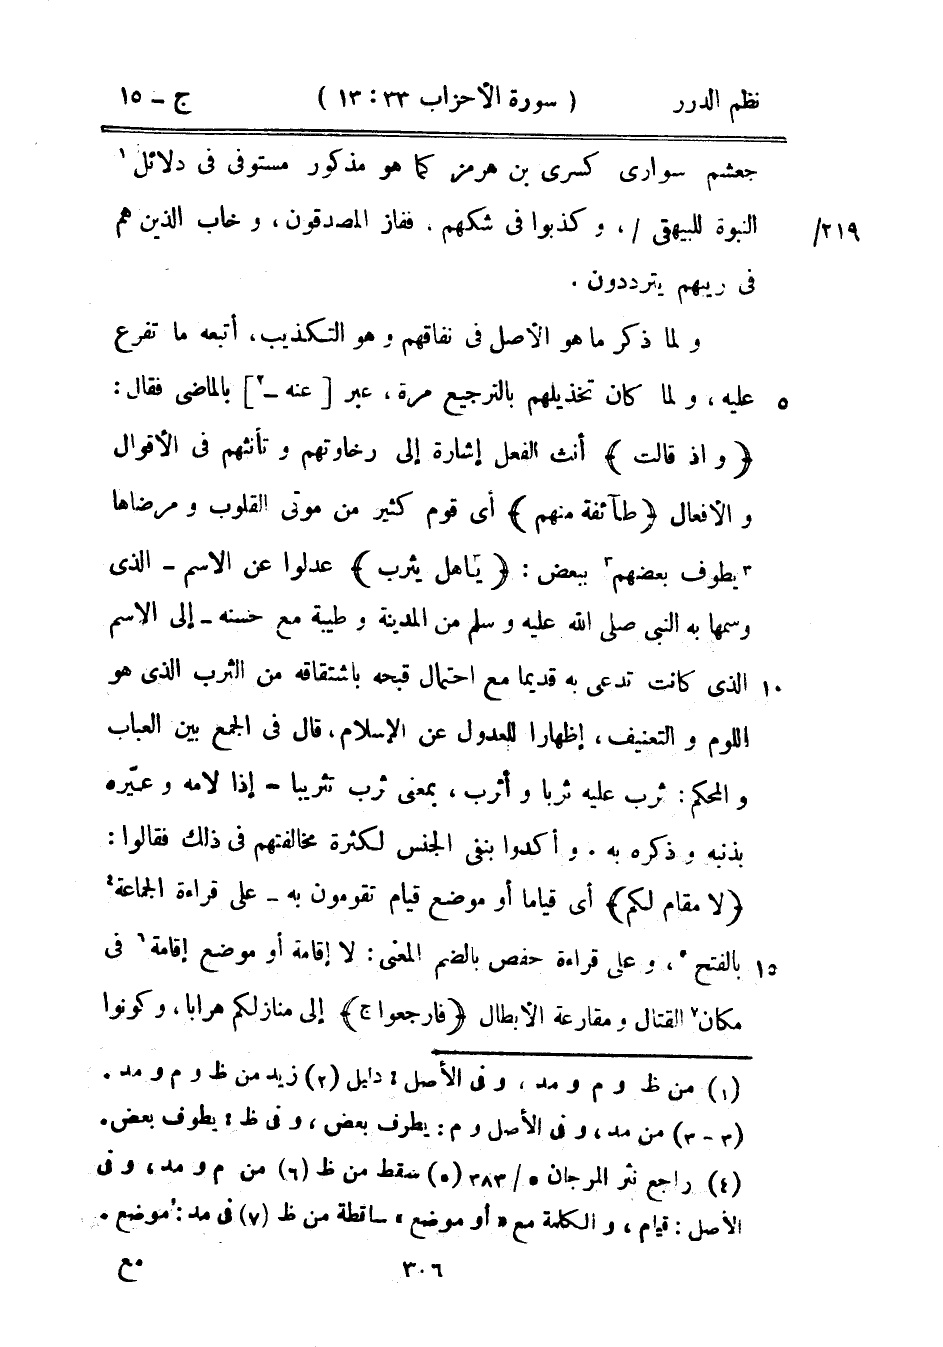 نظم الدرر ( سورة الأحزاب ٣٣ : ١٣ ) ج - ١٥
جعشم سوارى كسرى بن هرمز كما هو مذكور مستوفى فى دلائل ١
النبوة للبيهقى / ، و كذبوا فى شكهم . ففاز المصدقون ، و خاب الذين هم
٢١٩/
فى ريبهم يترددون .
و لما ذكر ما هو الأصل فى نفاقهم و هو التكذيب ، أتبعه ما تفرع
٥ عليه ، و لما كان تخذيلهم بالترجيع مرة ، عبر [ عنه - ٢ ] بالماضى فقال :
﴿ و اذ قالت ﴾ أنث الفعل إشارة إلى رخاوتهم و تأنثهم فى الأقوال
و الأفعال ﴿ طآئفة منهم ﴾ أى قوم كثير من موتى القلوب و مرضاها
٣ يطوف بعضهم ٣ ببعض : ﴿ يٰاهل يثرب ﴾ عدلوا عن الاسم - الذى
وسمها به النبى صلى الله عليه و سلم من المدينة و طيبة مع حسنه - إلى الاسم
١٠ الذى كانت تدعى به قديما مع احتمال قبحه باشتقاقه من الثرب الذى هو
اللوم و التعنيف ، إظهارا للعدول عن الإسلام ، قال فى الجمع بين العباب
و المحكم : ثرب عليه ثربا و أثرب ، بمعنى ثرب تثريبا - إذا لامه و عيّره
بذنبه و ذكره به . و أكدوا بنفى الجنس لكثرة مخالفتهم فى ذلك فقالوا :
﴿ لا مقام لكم ﴾ أى قياما أو موضع قيام تقومون به - على قراءة الجماعة ٤
١٥ بالفتح ٥ ، و على قراءة حفص بالضم المعنى : لا إقامة أو موضع إقامة ٦ فى
مكان ٧ القتال و مقارعة الأبطال ﴿ فارجعوا ج ﴾ إلى منازلكم هرابا ، و كونوا
(١) من ظ و م و مد ، و فى الأصل : دليل (٢) زيد من ظ و م و مد .
(٣ - ٣) من مد ، و فى الأصل و م : يطرف بعض ، و فى ظ : يطوف بعض .
(٤) راجع نثر المرجان ٥ / ٣٨٣ (٥) سقط من ظ (٦) من م و مد ، و فى
الأصل : قيام ، و الكلمة مع « أو موضع » ساقطة من ظ (٧) فى مد : موضع .
٣٠٦ مع